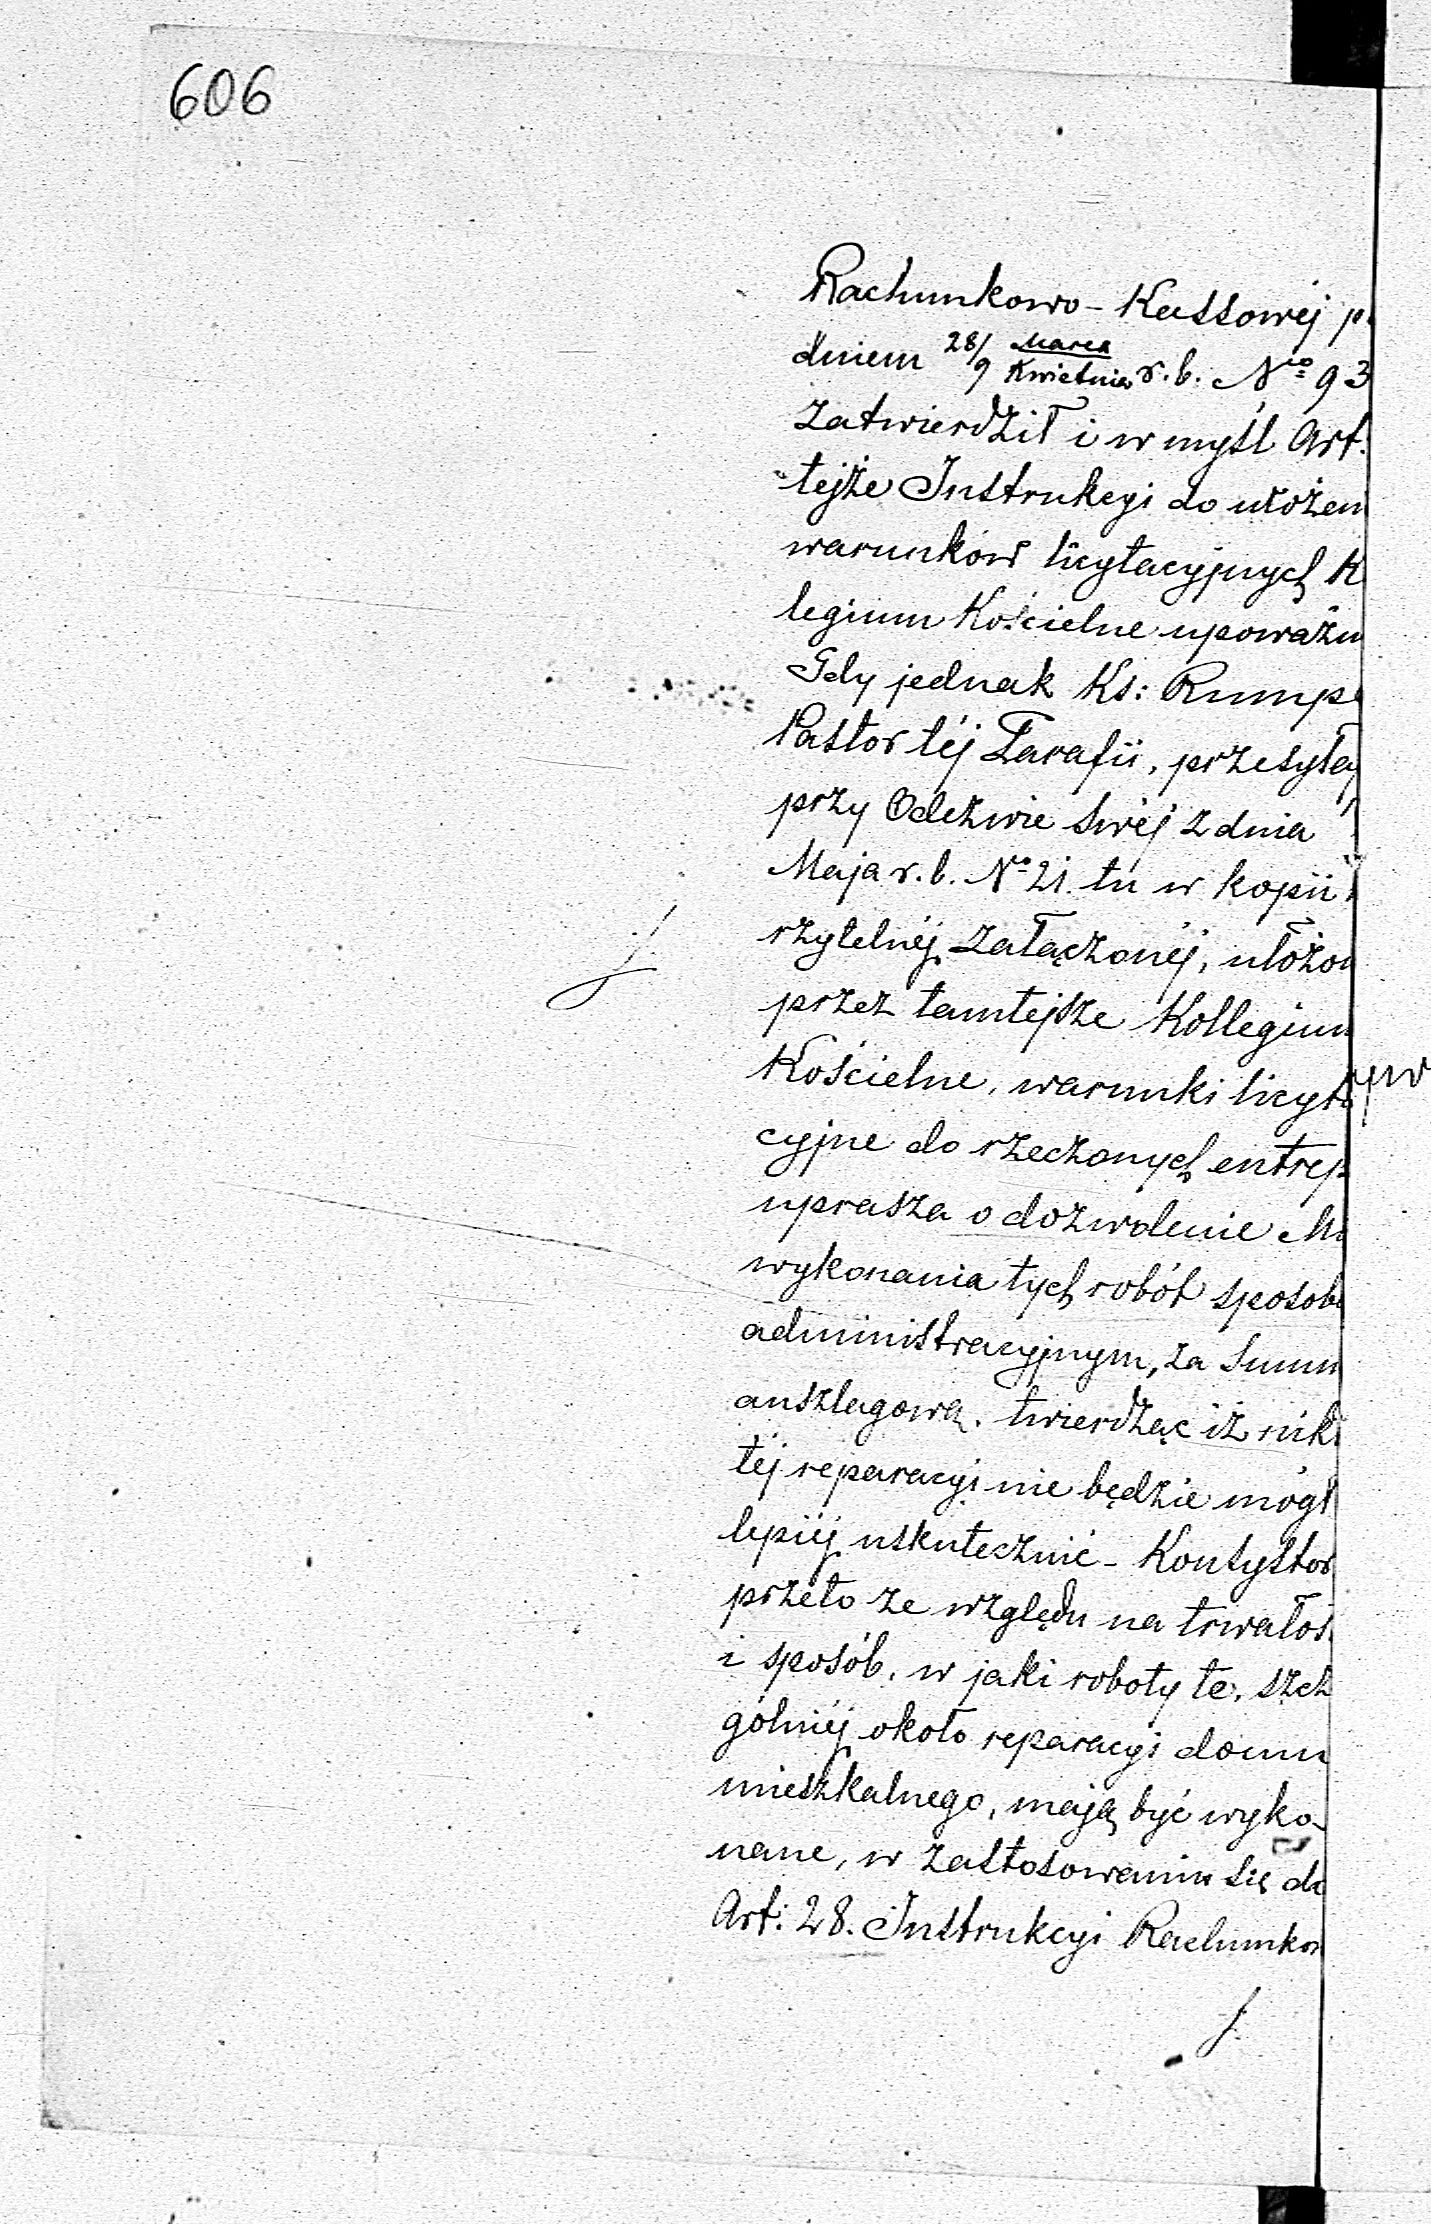 606
Rachunkowo-Kassowéj p
dniem 28/9 Marca/Kwietnia r.b. No 93
zatwierdził i w myśl Art.
tejże Instrukcyi do ułożen
warunków licytacyjnych K
legium Kościelne upoważn
Gdy jednak Ks: Rump
Pastor téj Parafii, przesyła
przy Odezwie swéj z dnia
Maja r.b. No 21. tu w kopii
rzytelnéj załączonéj, ułożon
przez tamtejsze Kollegium
Kościelne, warunki licyta
cyjne do rzeczonych entrep
uprasza o dozwolenie Mu
wykonania tych robót sposobe
administracyjnym, za Summ
anszlagową, twierdząc iż nik
téj reparacyi nie będzie mógł
lepiéj uskutecznić - Konsystor
przeto ze względu na trwałoś
i sposób, w jaki roboty te, szcz
gólniéj około reparacyi domu
mieszkalnego, mają być wyko-
nane, w zastosowaniu się do
Art: 28. Instrukcyi Rachunkow